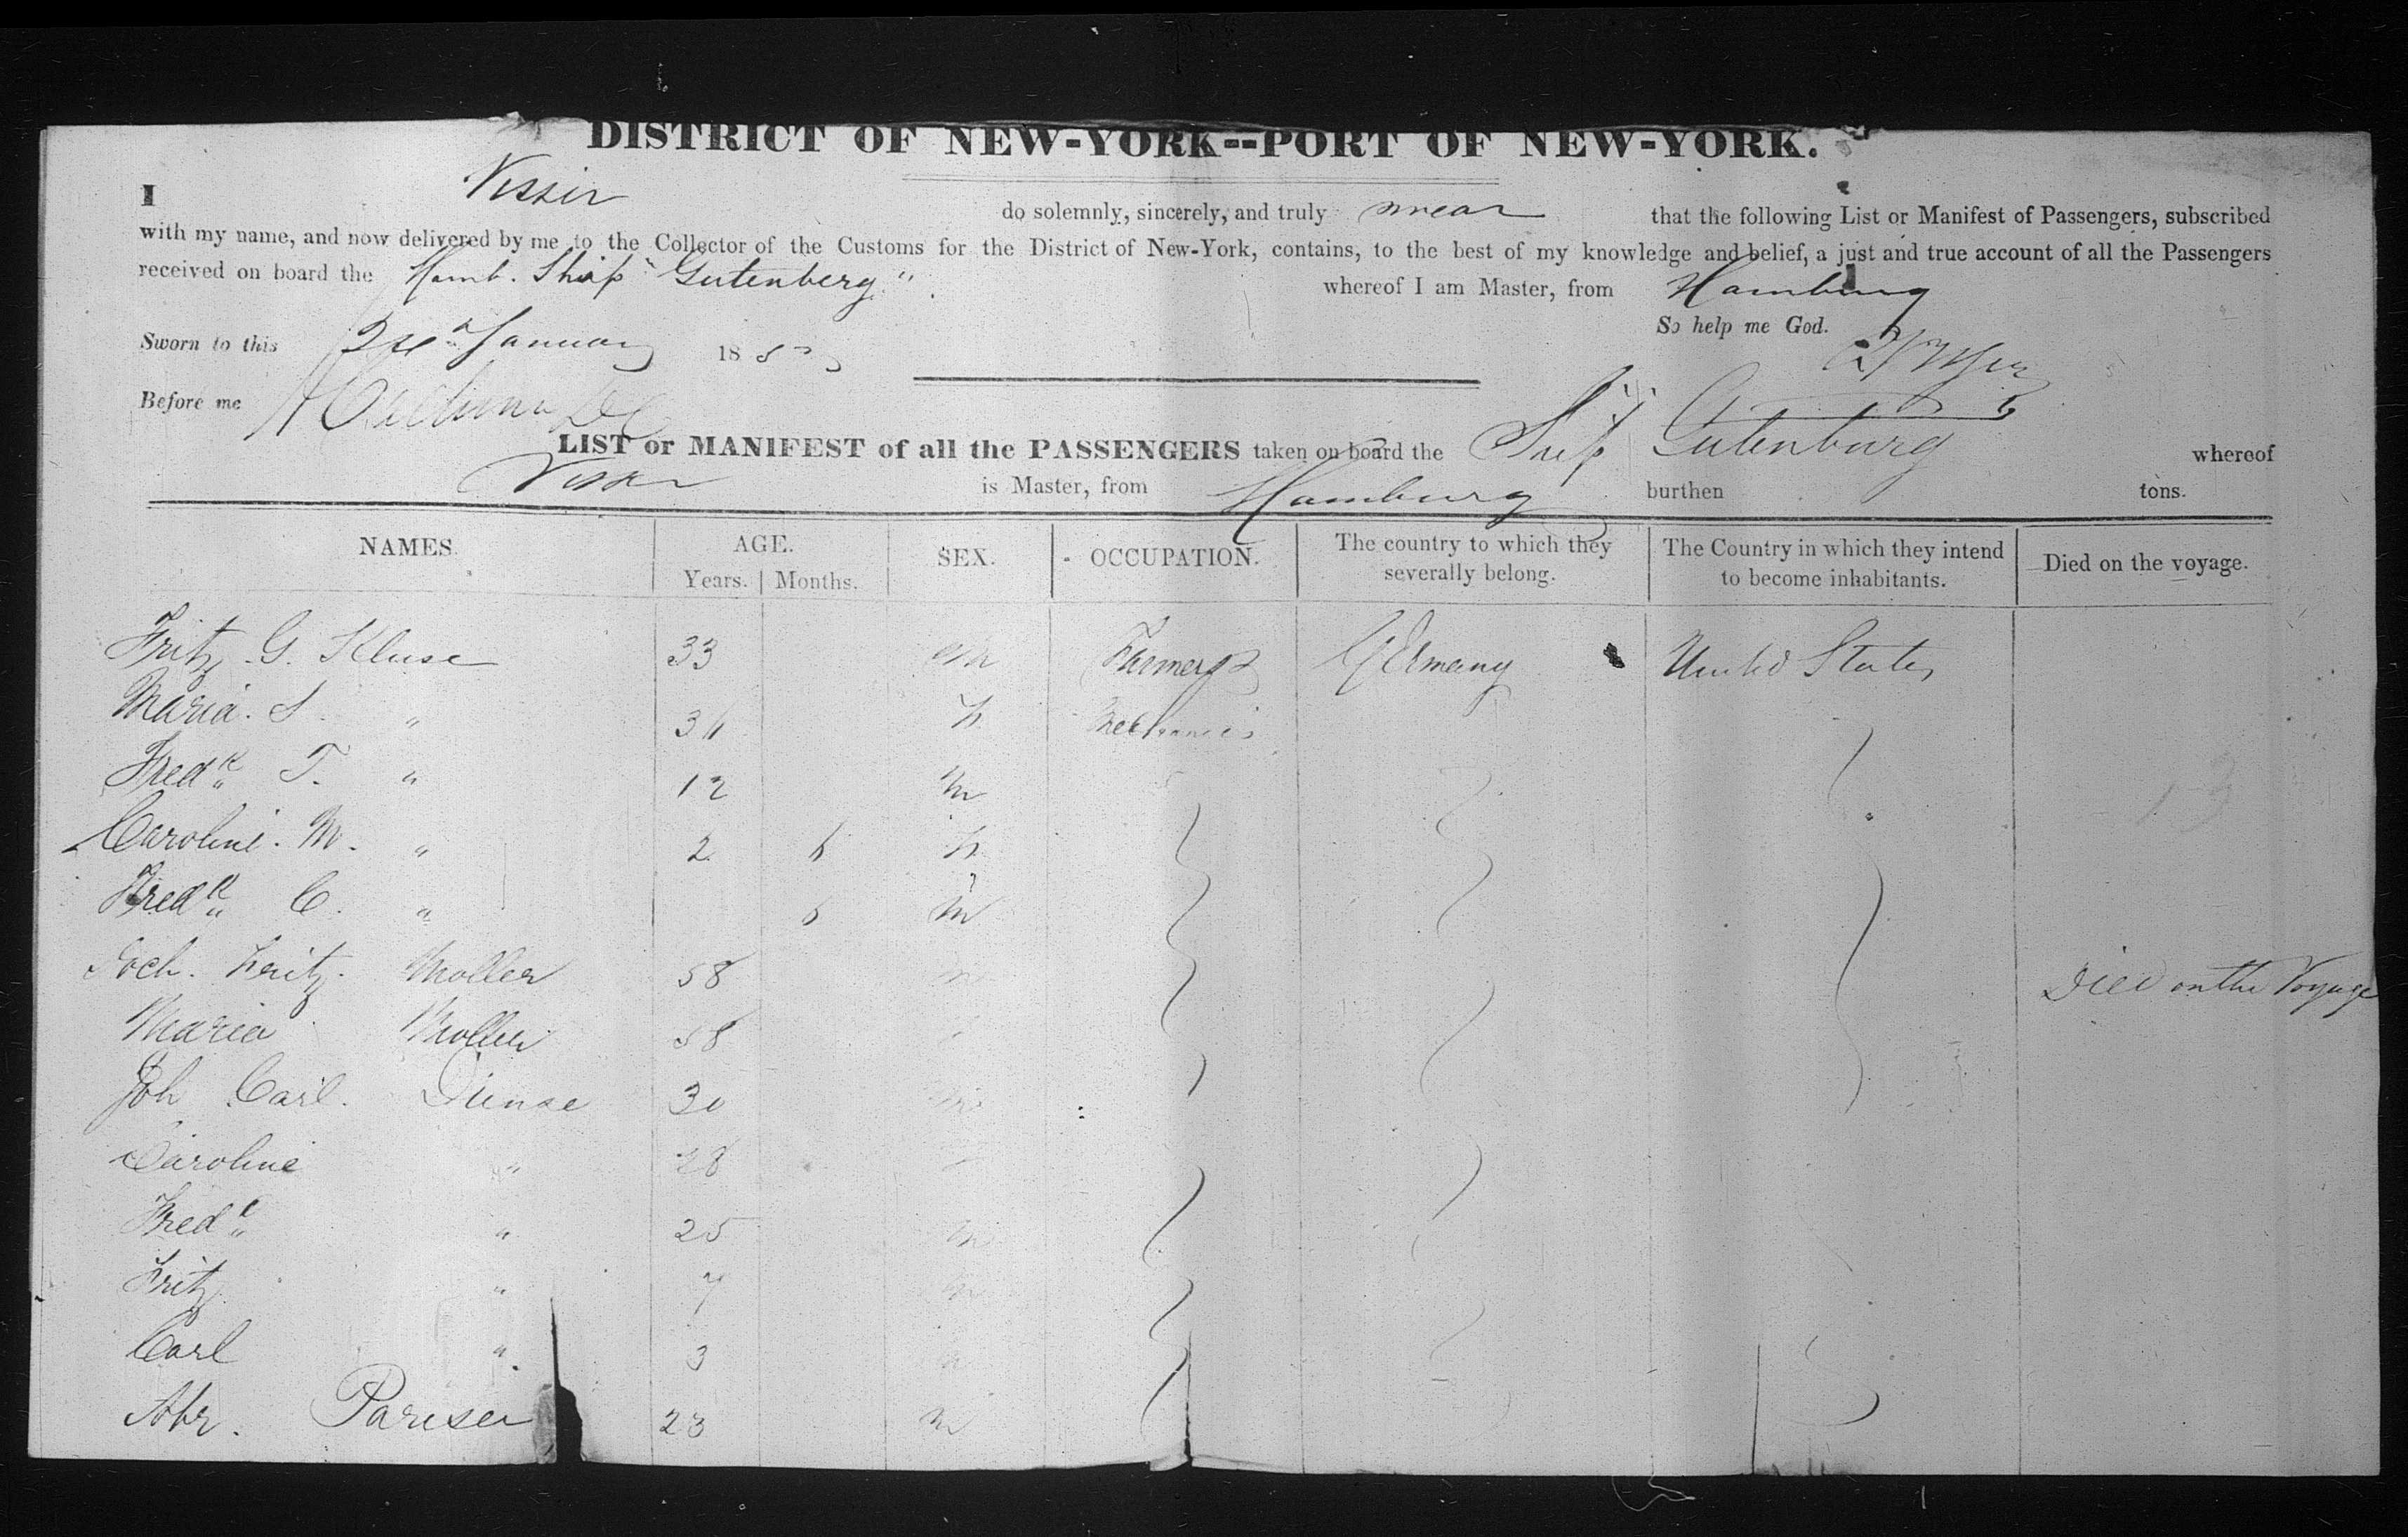 DISTRICT OF NEW-YORK--PORT OF NEW-YORK.
I Visser do solemnly, sincerely, and truly swear that the following List or Manifest of Passengers, subscribed
with my name, and now delivered by me to the Collector of the Customs for the District of New-York, contains, to the best of my knowledge and belief, a just and true account of all the Passengers
received on board the Hamb. Ship "Gutenberg" whereof I am Master, from Hamburg
So help me God.
Sworn to this January 185
Before me
LIST or MANIFEST of all the PASSENGERS taken on board the Ship Gutenburg whereof
Visser is Master, from Hamburg burthen tons.
NAMES. AGE. Years. Months. SEX. OCCUPATION. The country to which they severally belong. The Country in which they intend to become inhabitants. Died on the voyage.
Fritz G. Kluse 33 m Farmers Germany United States
Maria. S. " 31 f Mechanics
Fredk. T. " 12 m
Caroline. M. " 2 6 f
Fredk. C. " 6 m
Joch. Fritz. Moller 58 m Died on the Voyage
Maria Moller 58
Joh Carl. Dunse 30 m
Caroline " 28
Fredk " 25 m
Fritz " 7 m
Carl " 3 m
Abr. Pariser 23 m